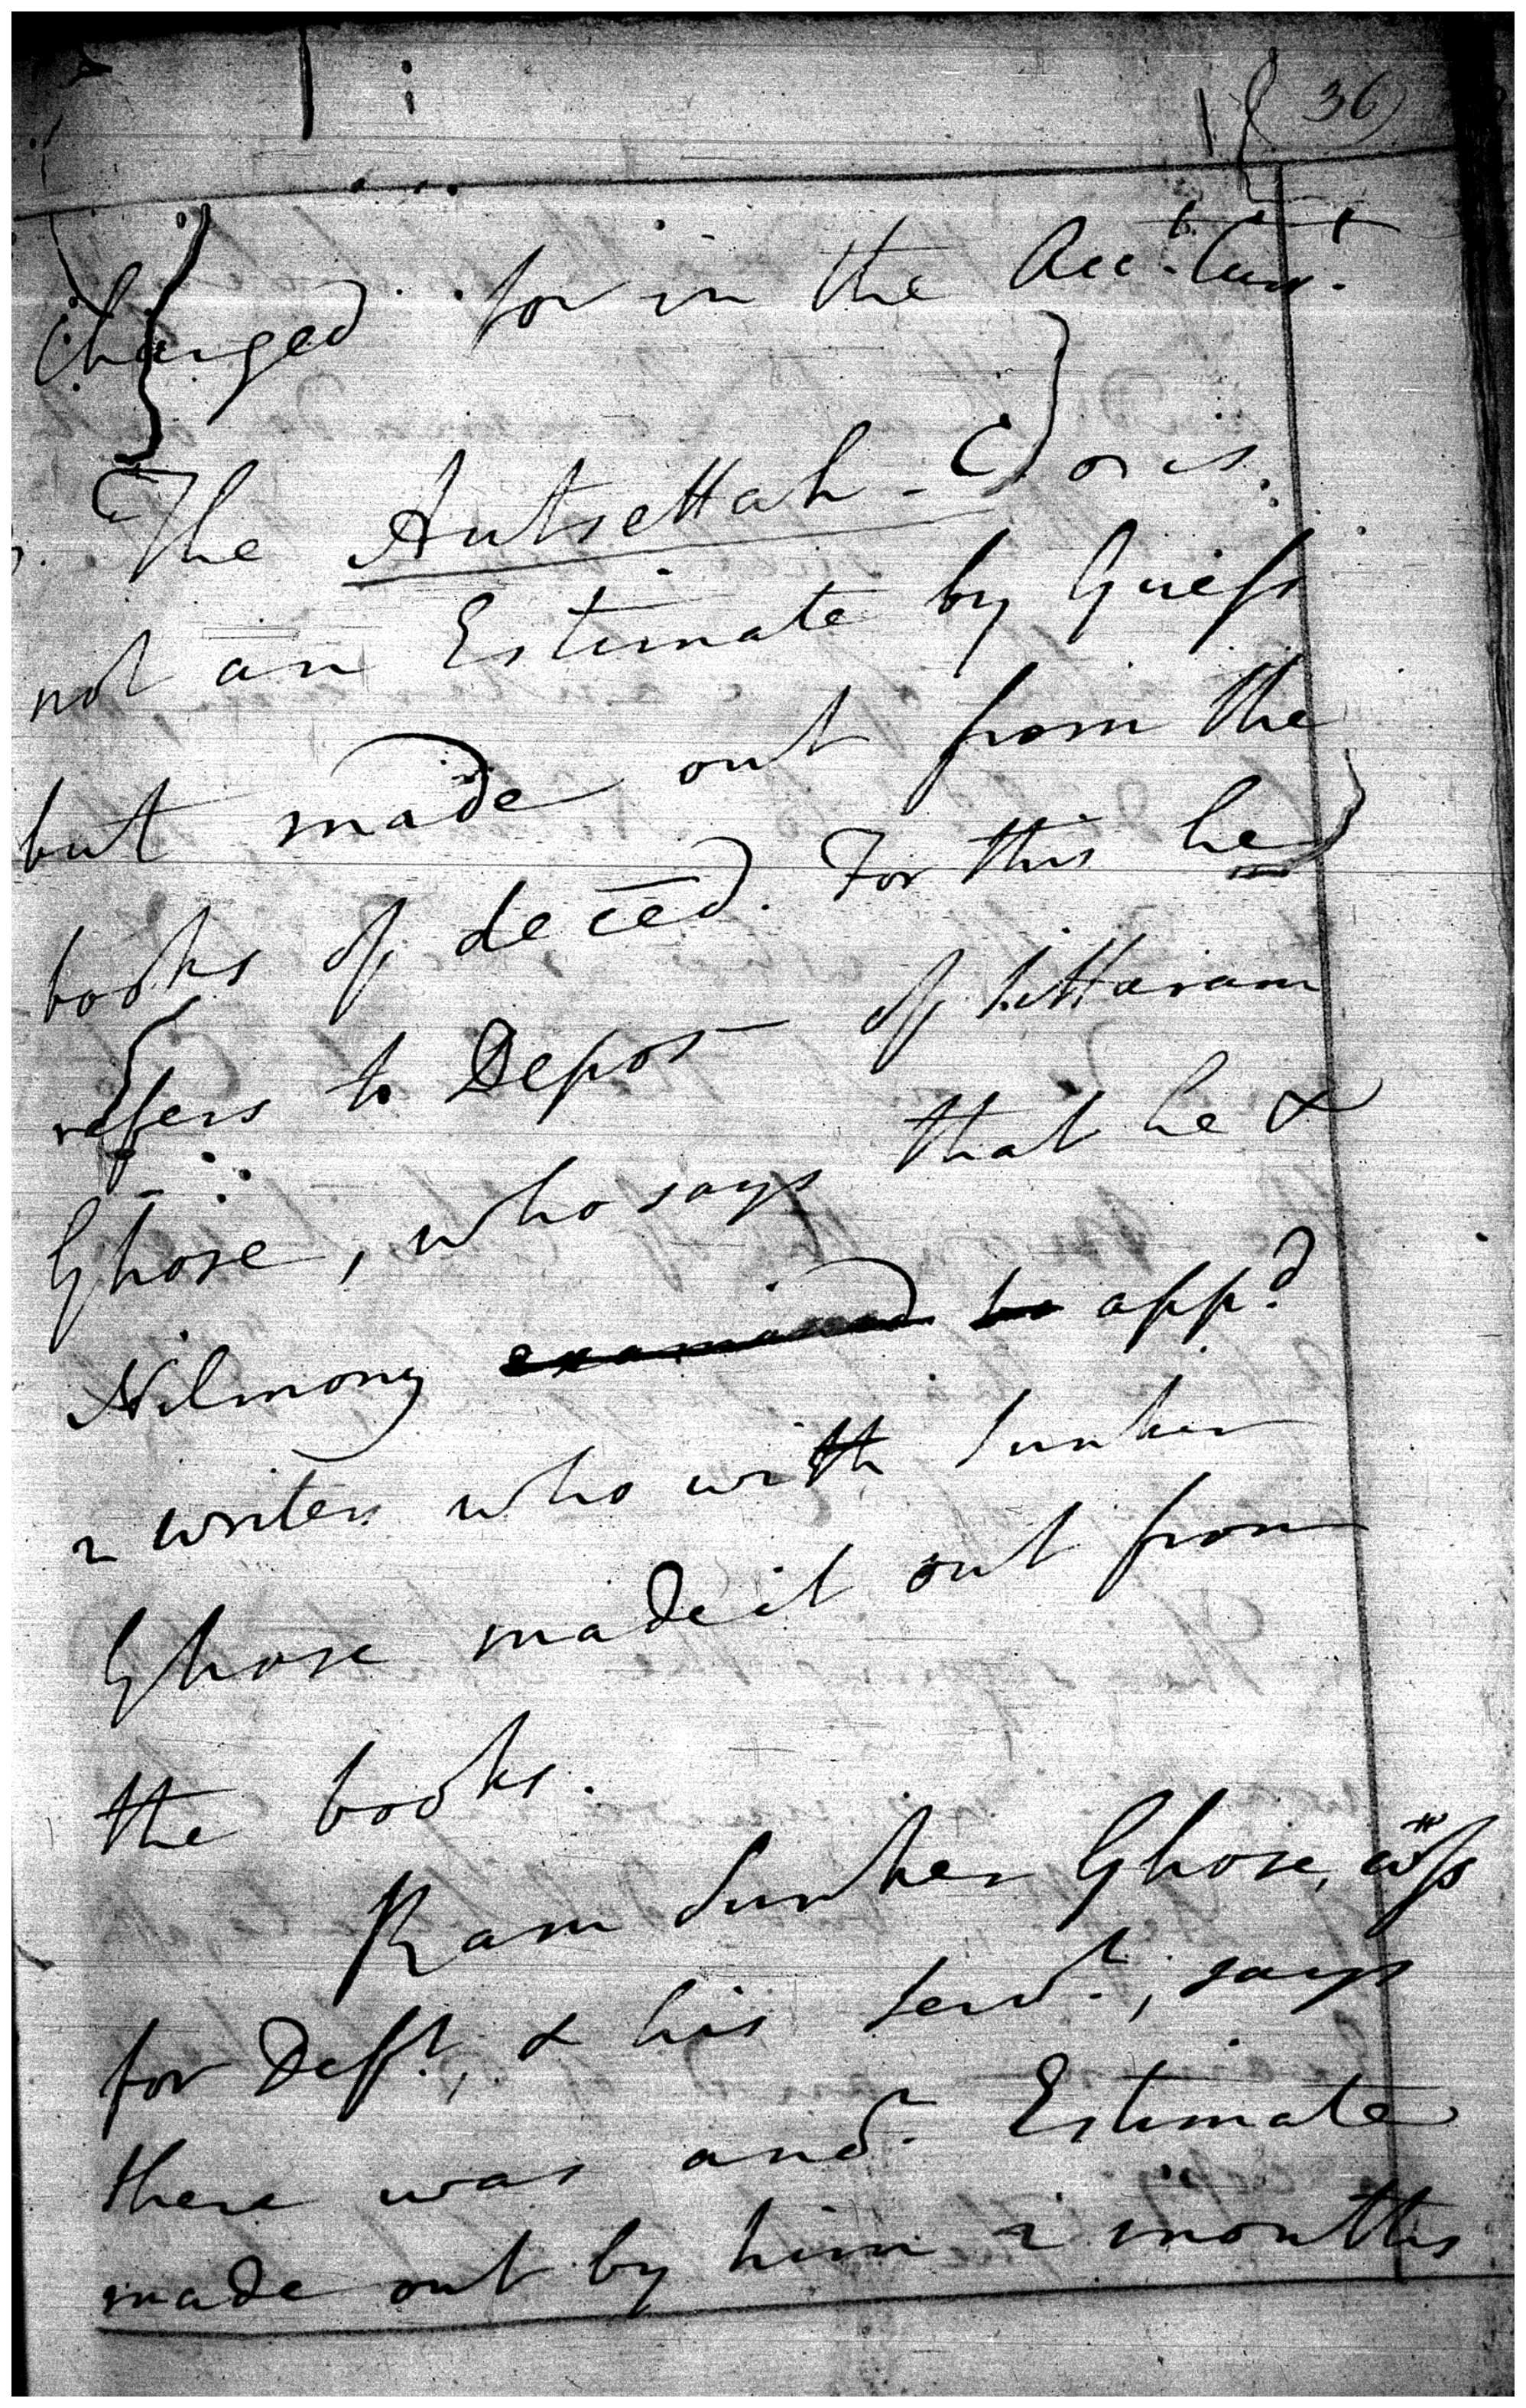 36
charged for in the Acc.t Curr.t
The Autsettah - C or is
not an Estimate by Guess
but made out from the
books of deced. For this he
refers to Depos of Sittaram
Ghose, who says that he &
Nilmony examined to app.d
2 writers who with Sunker
Ghose made it out from
the books.
Ram Sunker Ghose, a witss
for Deft, & his serv.t, says
there was and Estimate
made out by him 2 months